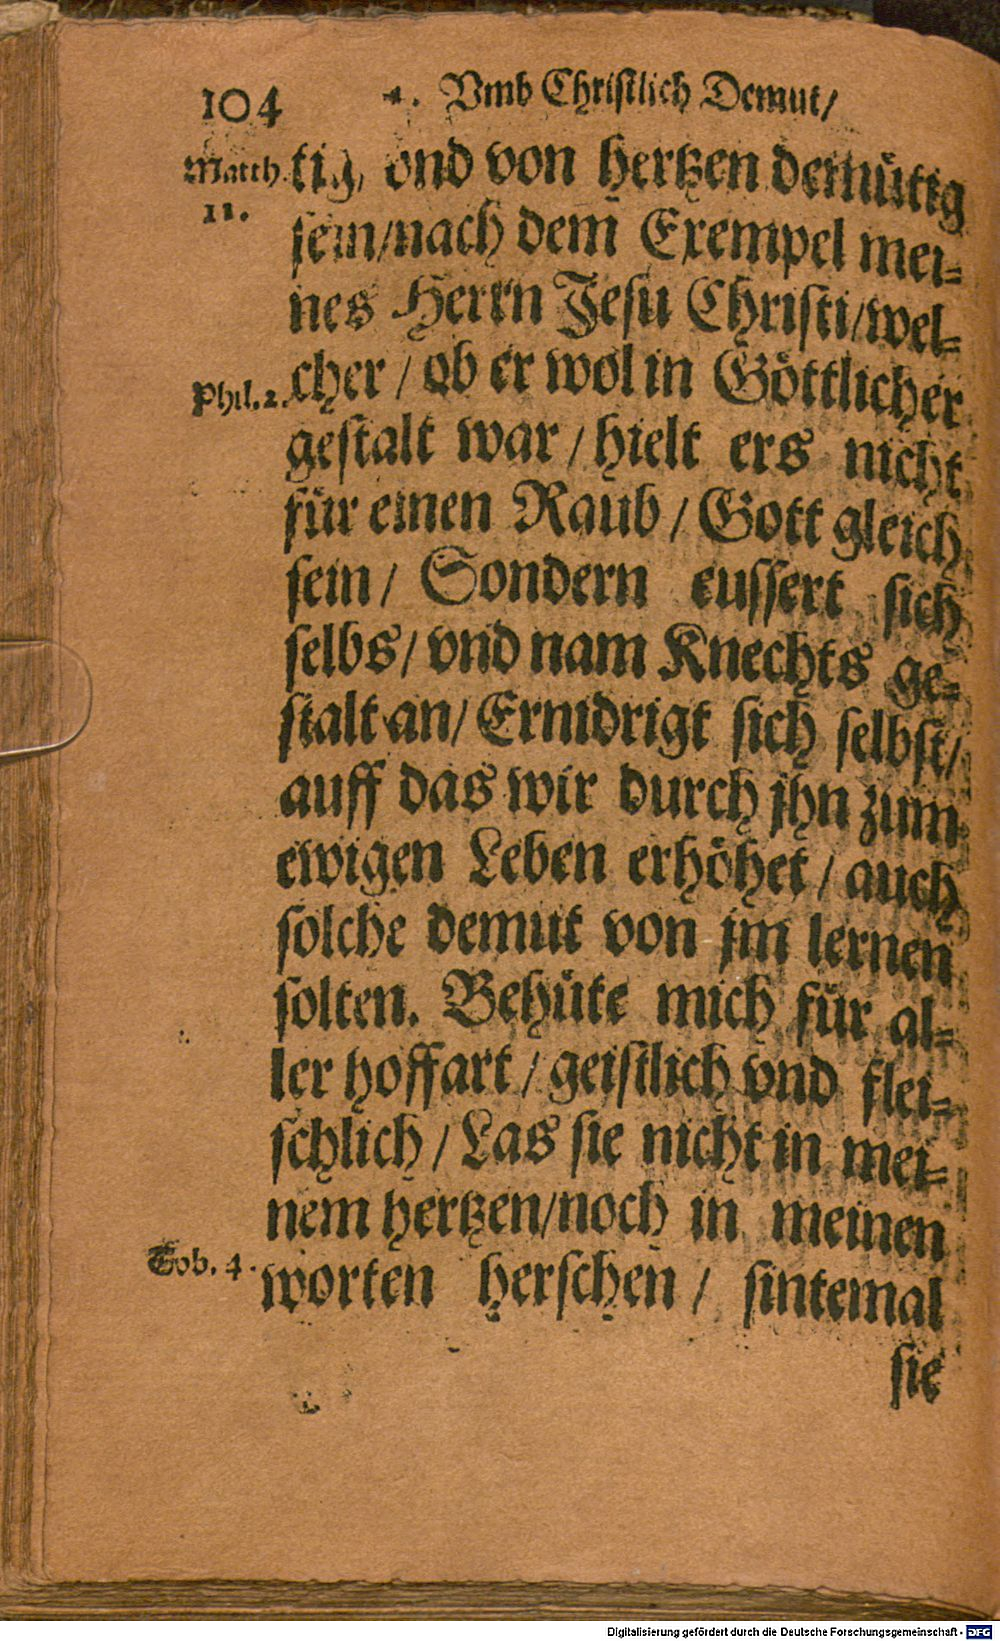 104 4. Vmb Christlich Demut/
Matth. 11.
tig, vnd von hertzen demütig
sein/nach dem Exempel mei=
nes Herrn Jesu Christi/wel=
Phil. 2.
cher / ob er wol in Göttlicher
gestalt war / hielt ers nicht
für einen Raub / Gott gleich
sein / Sondern eussert sich
selbs/ vnd nam Knechts ge=
stalt an/ Ernidrigt sich selbst/
auff das wir durch jhn zum
ewigen Leben erhöhet / auch
solche demut von jm lernen
solten. Behüte mich für al=
ler hoffart / geistlich vnd flei=
schlich / Las sie nicht in mei=
nem hertzen/noch in meinen
Tob. 4.
worten herschen / sintemal
sie
Digitalisierung gefördert durch die Deutsche Forschungsgemeinschaft - DFG